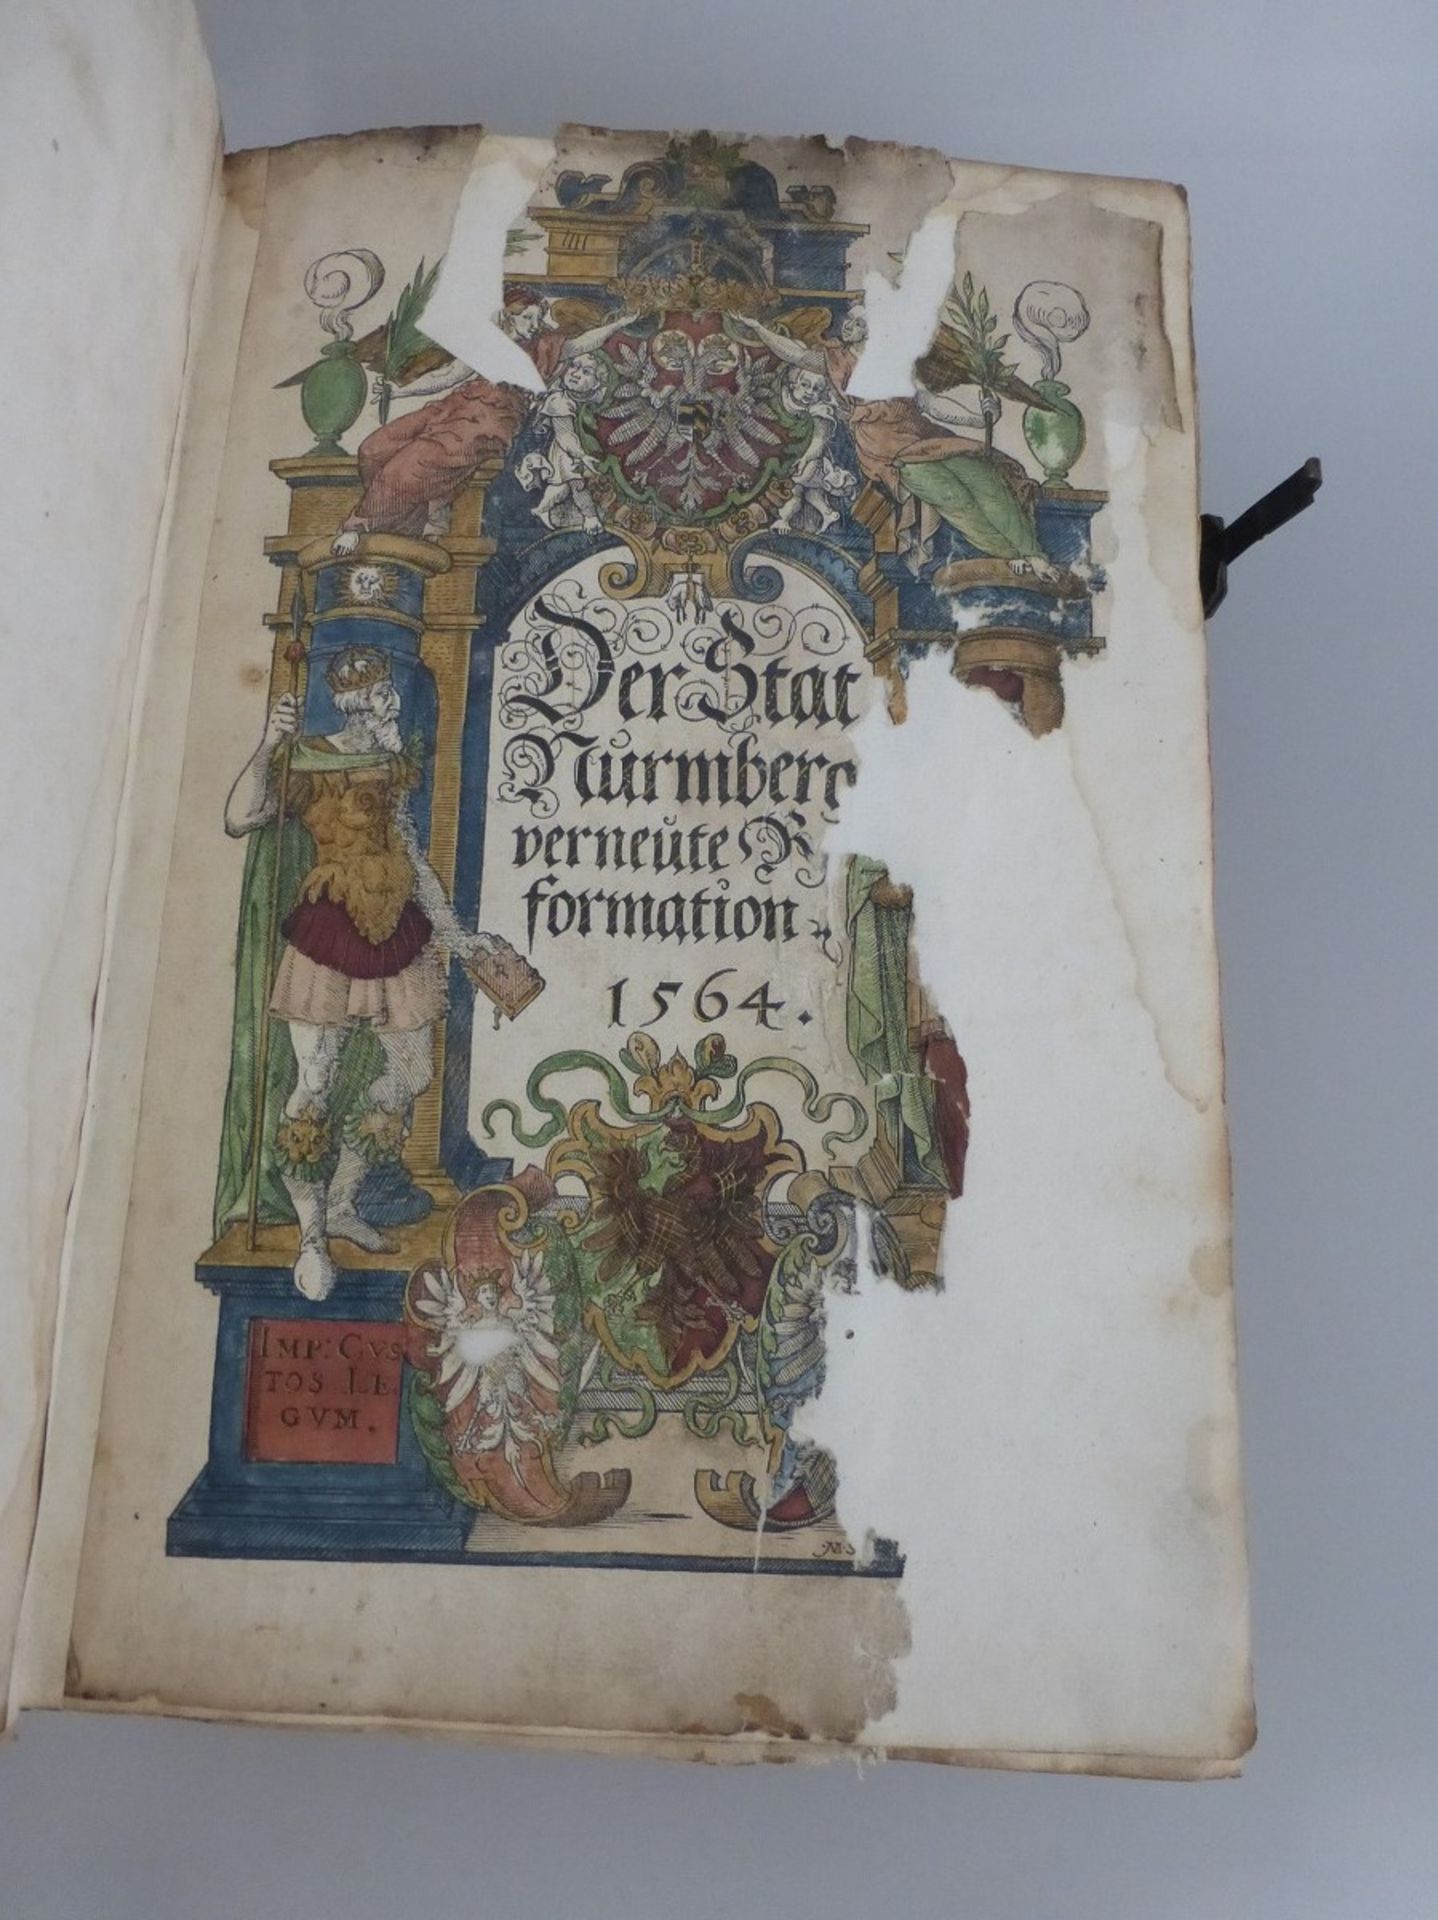 Der Stat
Nurmberg
verneute Re
formation
1564.
IMP: CVS
TOS LE
GVM.